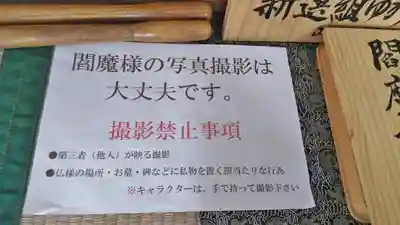 閻魔様の写真撮影は
大丈夫です。
撮影禁止事項
●第三者（他人）が映る撮影
●仏様の場所・お墓・碑などに私物を置く罰当たりな行為
※キャラクターは、手で持って撮影下さい
新選組
閻魔